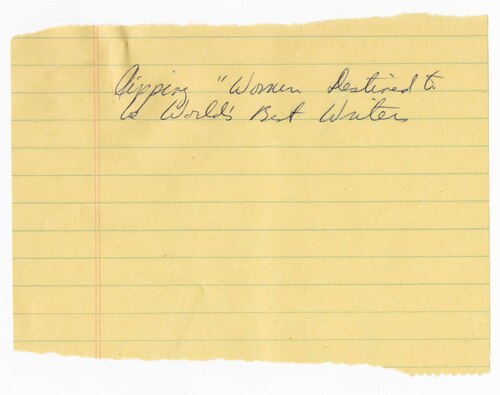 Clipping "Women Destined to
be World's Best Writers